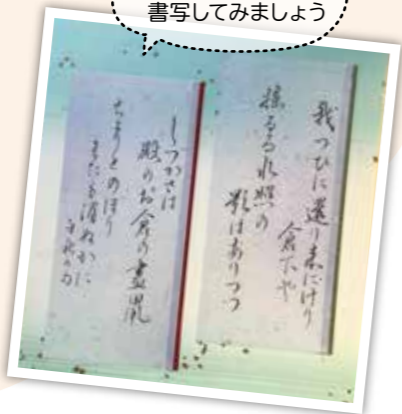 書写してみましょう
我つひに還り来にけり
倉下や
揺るる水照の
影はありつつ
しづかさは
殿のお倉の晝鼠
ちょりとのぼり
またも消ぬかに